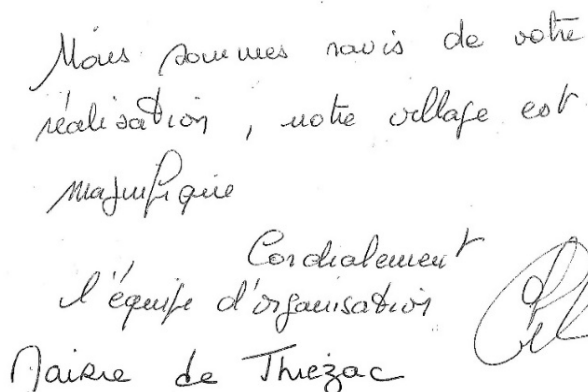 Nous sommes ravis de votre
réalisation, notre village est
magnifique
Cordialement
l'équipe d'organisation
Mairie de Thiézac